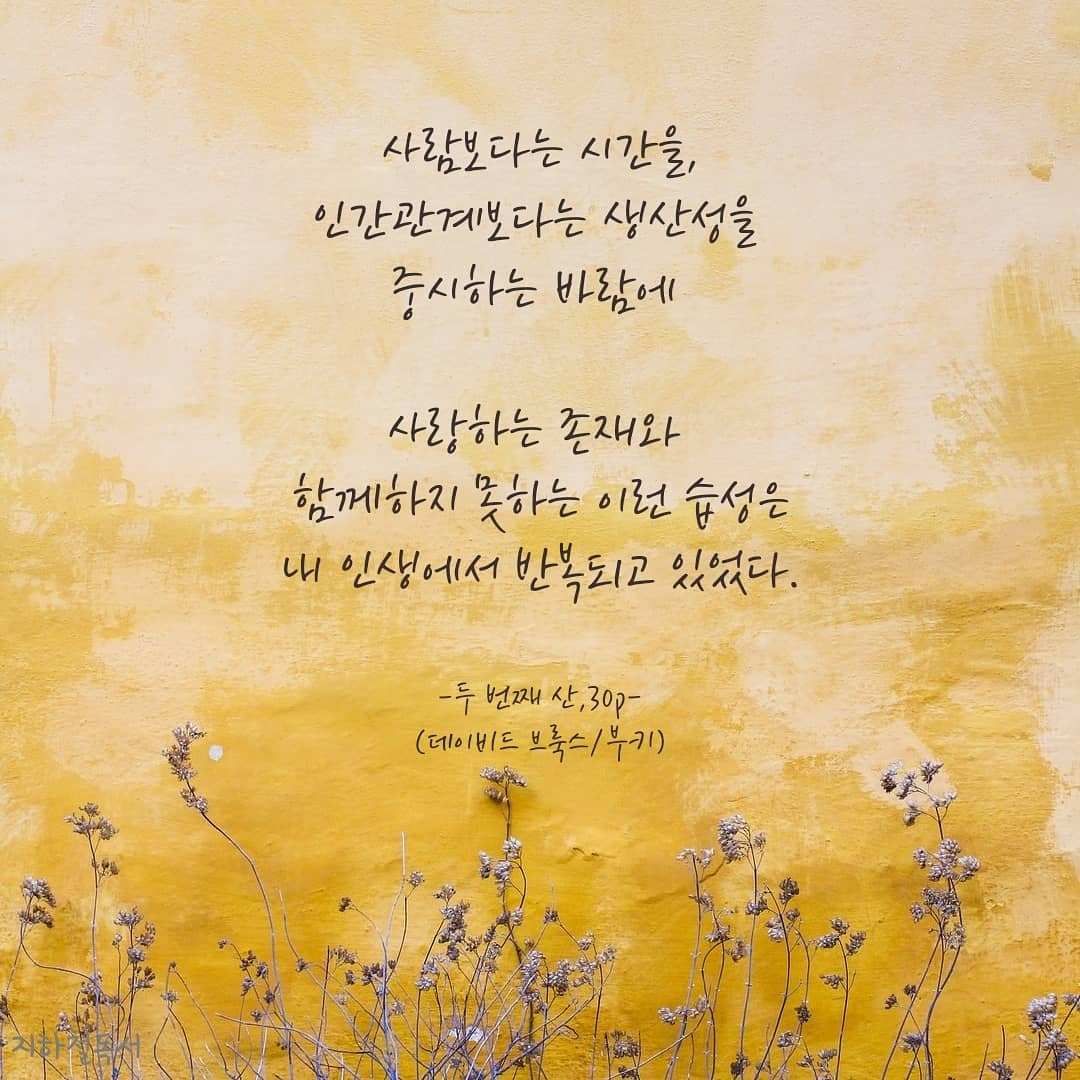 사람보다는 시간을,
인간관계보다는 생산성을
중시하는 바람에
사랑하는 존재와
함께하지 못하는 이런 습성은
내 인생에서 반복되고 있었다.
-두 번째 산,30p-
(데이비드 브룩스/부키)
지하철독서